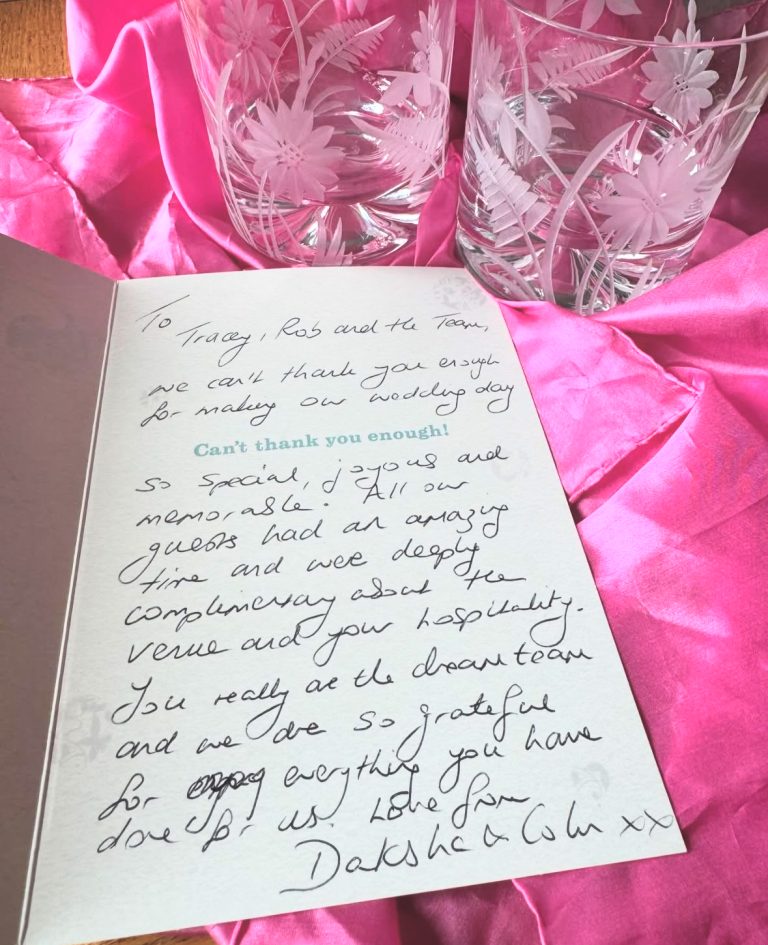 To
Tracey, Rob and the Team,
we can't thank you enough
for making our wedding day
Can't thank you enough!
so special, joyous and
memorable. All our
guests had an amazing
time and were deeply
complimentary about the
venue and your hospitality.
You really are the dream team
and we are so grateful
for everything you have
done for us. Love from
Daksha & Colin xx